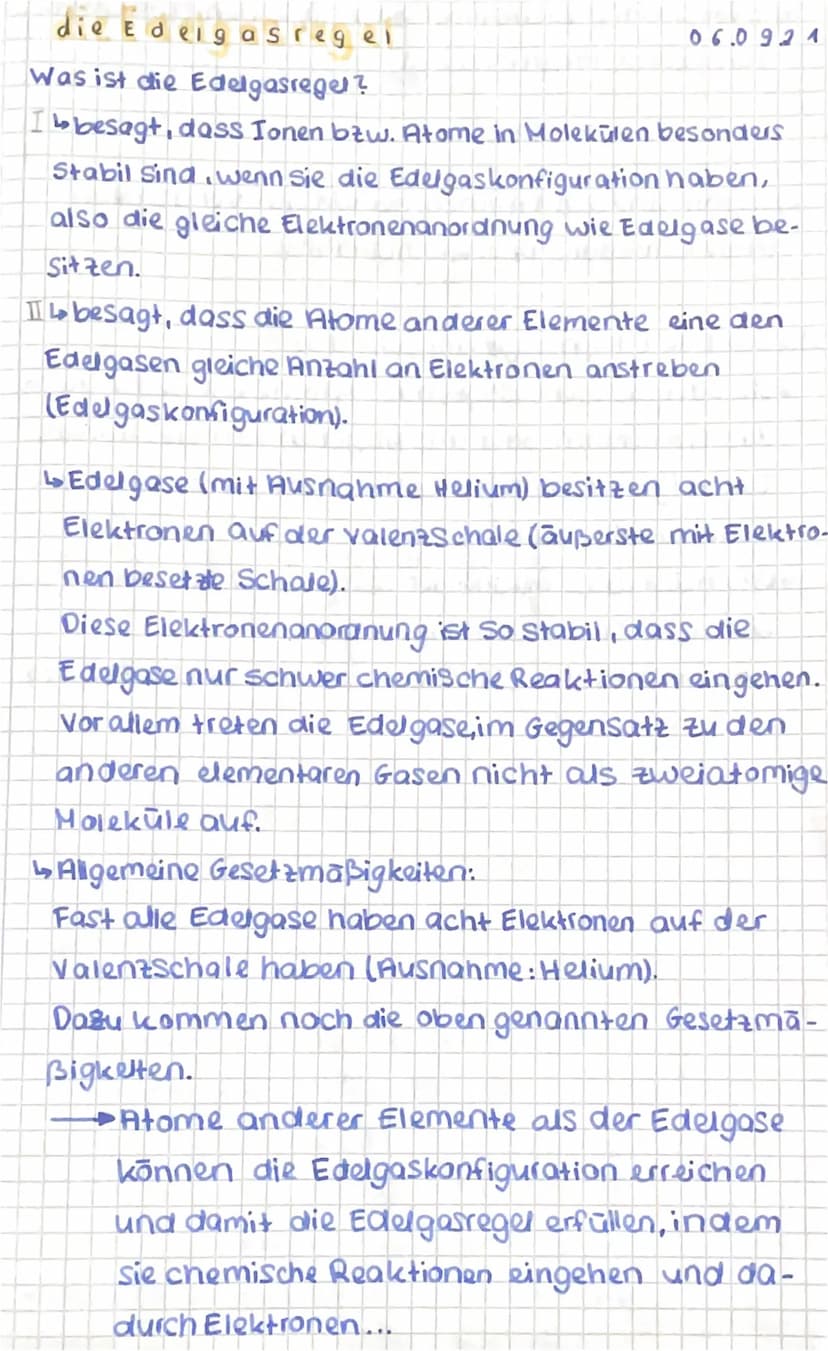 die Edelgasregel 06.0921
Was ist die Edelgasregel?
I ↳ besagt, dass Ionen bzw. Atome in Molekülen besonders
stabil sind, wenn sie die Edelgaskonfiguration haben,
also die gleiche Elektronenanordnung wie Edelgase be-
sitzen.
II ↳ besagt, dass die Atome anderer Elemente eine den
Edelgasen gleiche Anzahl an Elektronen anstreben
(Edelgaskonfiguration).
↳ Edelgase (mit Ausnahme Helium) besitzen acht
Elektronen auf der Valenzschale (äußerste mit Elektro-
nen besetzte Schale).
Diese Elektronenanordnung ist so stabil, dass die
Edelgase nur schwer chemische Reaktionen eingehen.
Vor allem treten die Edelgase, im Gegensatz zu den
anderen elementaren Gasen nicht als zweiatomige
Moleküle auf.
↳ Allgemeine Gesetzmäßigkeiten:
Fast alle Edelgase haben acht Elektronen auf der
Valenzschale haben (Ausnahme: Helium).
Dazu kommen noch die oben genannten Gesetzmä-
ßigkeiten.
→ Atome anderer Elemente als der Edelgase
können die Edelgaskonfiguration erreichen
und damit die Edelgasregel erfüllen, indem
sie chemische Reaktionen eingehen und da-
durch Elektronen...